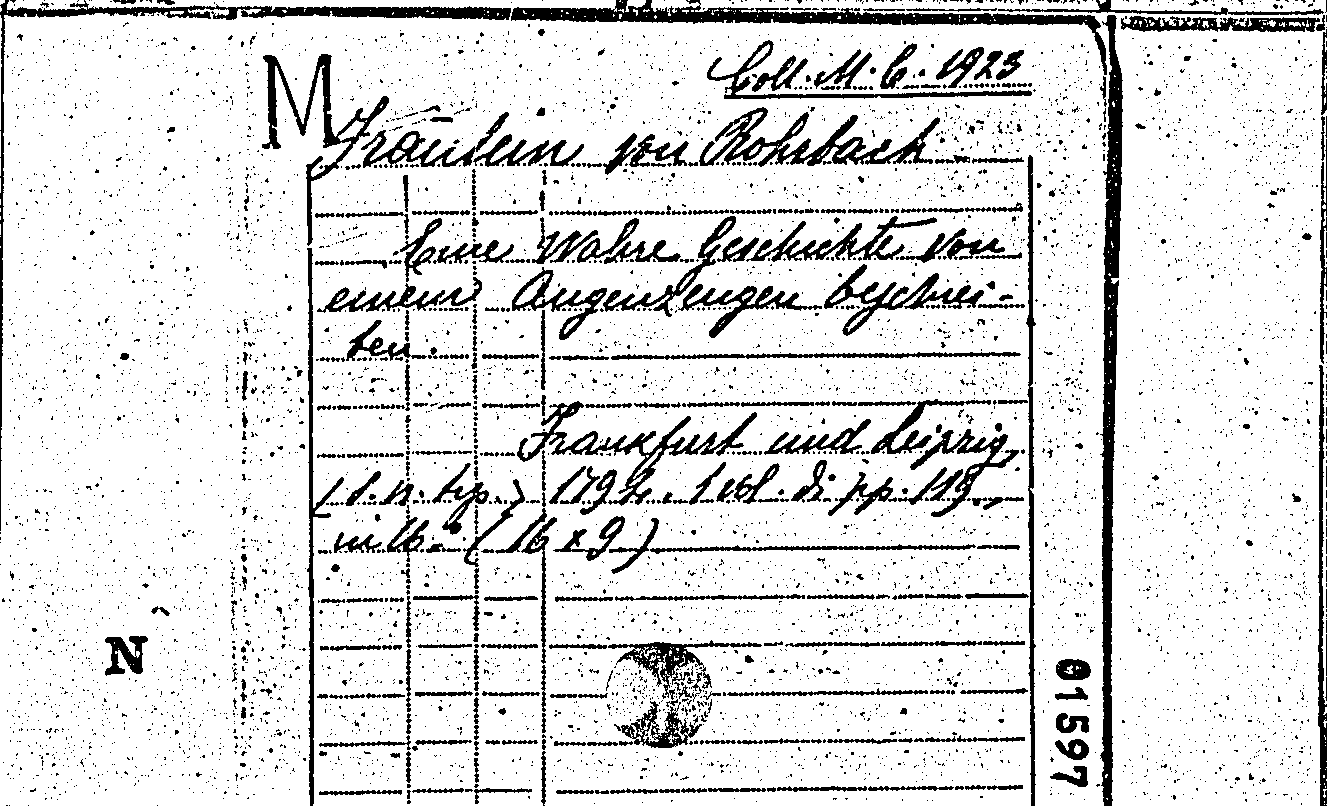 M
Coll. M. C. 1923
Fräulein von Rohrbach
Eine Wahre Geschichte von
einem Augenzeugen beschrie-
ben.
Frankfurt und Leipzig,
(s. n. typ.) 179 . 1 vol. di pp. 119.,
in 16.° (16 x 9)
N
01597